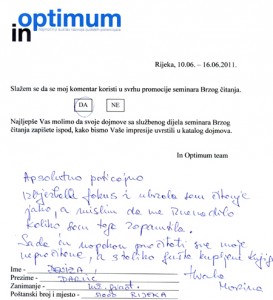 optimum
in
Rijeka, 10.06. – 16.06.2011.
Slažem se da se moj komentar koristi u svrhu promocije seminara Brzog čitanja.
DA NE
Najljepše Vas molimo da svoje dojmove sa službenog dijela seminara Brzog
čitanja zapišete ispod, kako bismo Vaše impresije uvrstili u katalog dojmova.
In Optimum team
Apsolutno poticajno
fokus i ubrzala sam čitanje
jako, a mislim da me iznenadilo
koliko sam toga zapamtila.
Sada ću napokon pročitati sve moje
nepročitane, a stoliko kupljene knjige
Hvala
Ime -
Prezime -
Zanimanje -
Poštanski broj i mjesto - RIJEKA